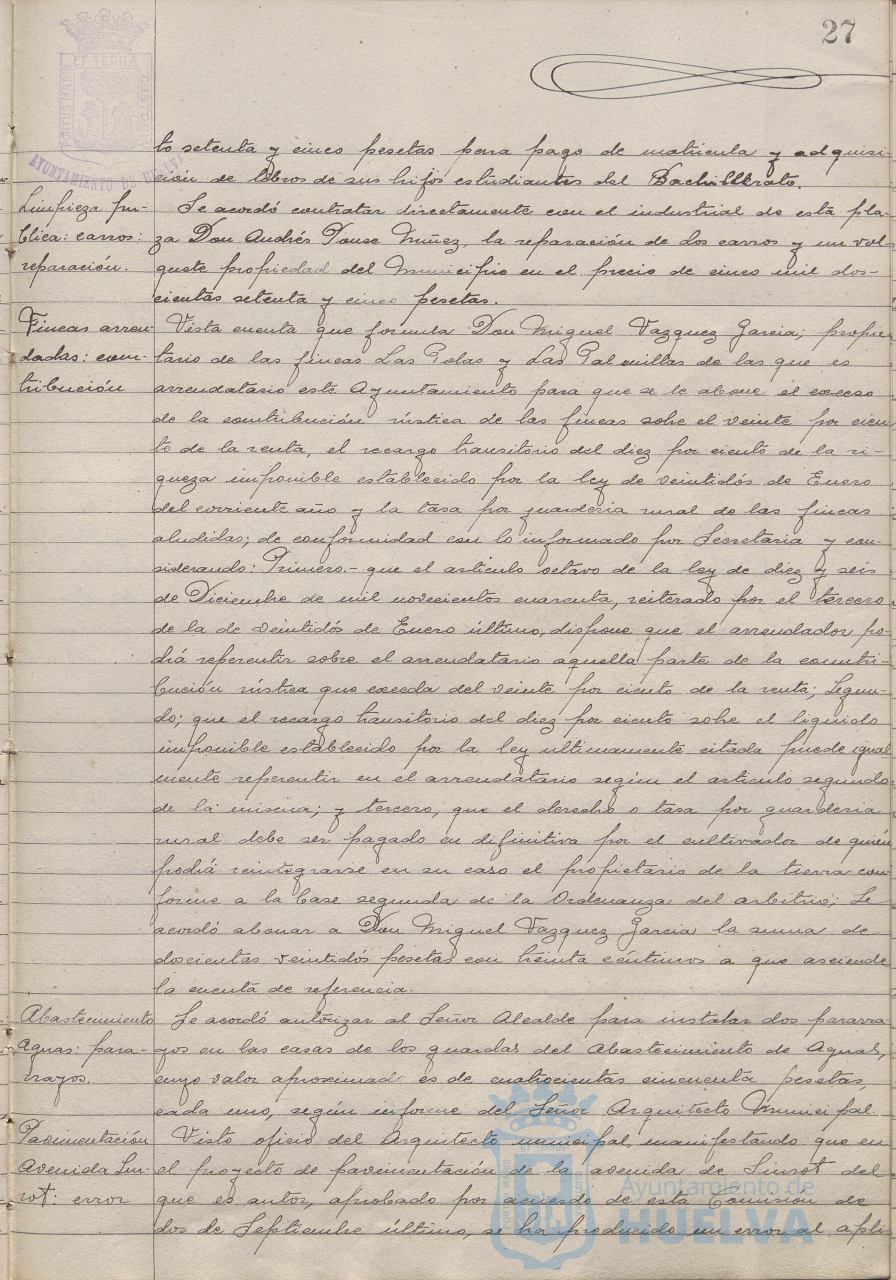 27
PORTUS MARIS ET TERRÆ CUSTODIA
AYUNTAMIENTO DE HUELVA
to setenta y cinco pesetas para pago de matricula y adquisi-
ción de libros de sus hijos estudiantes del Bachillerato.
Limpieza pú-
blica: carros:
reparación.
Se acordó contratar directamente con el industrial de esta pla-
za Don Andrés Ponce Núñez, la reparación de dos carros y un vol-
quete propiedad del Municipio en el precio de cinco mil dos-
cientas setenta y cinco pesetas.
Fincas arren-
dadas: con-
tribución
Vista cuenta que formula Don Miguel Vazquez Garcia; propie-
tario de las fincas Las Golas y Las Palmillas de las que es
arrendatario este Ayuntamiento para que se le abone el exceso
de la contribución rústica de las fincas sobre el veinte por cien
to de la renta, el recargo transitorio del diez por ciento de la ri-
queza imponible establecido por la ley de veintidós de Enero
del corriente año y la tasa por guarderia rural de las fincas
aludidas; de conformidad con lo informado por Secretaria y con-
siderando: Primero.- que el articulo octavo de la ley de diez y seis
de Diciembre de mil novecientos cuarenta, reiterado por el tercero
de la de veintidós de Enero último, dispone que el arrendador po-
drá repercutir sobre el arrendatario aquella parte de la contri-
bución rústica que exceda del veinte por ciento de la renta; Segun-
do; que el recargo transitorio del diez por ciento sobre el liquido
imponible establecido por la ley ultimamente citada puede igual
mente repercutir en el arrendatario según el articulo segundo
de la misma; y tercero, que el derecho o tasa por guarderia
rural debe ser pagado en difinitiva por el cultivador de quien
podrá reintegrarse en su caso el propietario de la tierra con
forme a la base segunda de la Ordenanza del arbitrio; Se
acordó abonar a Don Miguel Vazquez Garcia la suma de
doscientas veintidós pesetas con treinta céntimos a que asciende
la cuenta de referencia.
Abastecimiento
Aguas: para-
rrayos.
Se acordó autorizar al Señor Alcalde para instalar dos pararra
yos en las casas de los guardas del Abastecimiento de Aguas,
cuyo valor aproximado es de cuatrocientas cincuenta pesetas,
cada uno, según informe del Señor Arquitecto Municipal.
Pavimentación
Avenida
error
Visto oficio del Arquitecto municipal, manifestando que en
el proyecto de pavimentación de la avenida de del
que es autor, aprobado por acuerdo de esta Comisión de
dos de Septiembre último, se ha producido un error al apli
Ayuntamiento de
HUELVA